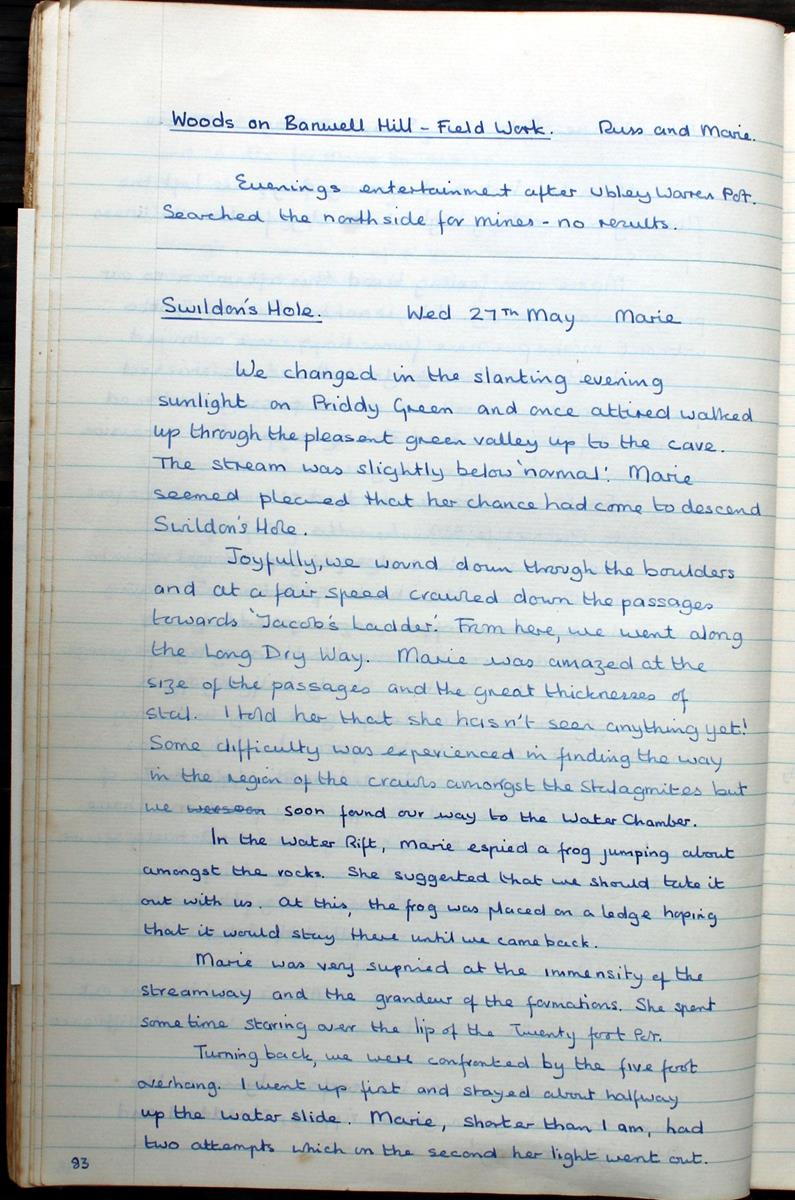 Woods on Banwell Hill - Field Work. Russ and Marie.
Evenings entertainment after Ubley Warren Pot.
Searched the north side for mines - no results.
Swildon's Hole. Wed 27TH May Marie
We changed in the slanting evening
sunlight on Priddy Green and once attired walked
up through the pleasent green valley up to the cave.
The stream was slightly below 'normal'. Marie
seemed pleased that her chance had come to descend
Swildon's Hole.
Joyfully, we wound down through the boulders
and at a fair speed crawled down the passages
towards 'Jacob's Ladder'. From here, we went along
the Long Dry Way. Marie was amazed at the
size of the passages and the great thicknesses of
stal. I told her that she hasn't seen anything yet!
Some difficulty was experienced in finding the way
in the region of the crawls amongst the Stalagmites but
we soon found our way to the Water Chamber.
In the Water Rift, Marie espied a frog jumping about
amongst the rocks. She suggested that we should take it
out with us. At this, the frog was placed on a ledge hoping
that it would stay there until we came back.
Marie was very suprised at the immensity of the
streamway and the grandeur of the formations. She spent
some time staring over the lip of the Twenty foot Pot.
Turning back, we were confronted by the five foot
overhang. I went up first and stayed about halfway
up the water slide. Marie, shorter than I am, had
two attempts which in the second her light went out.
83